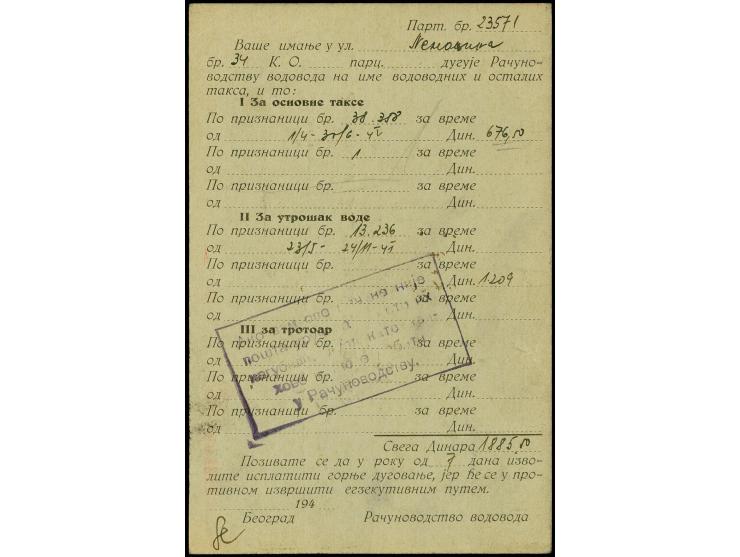 Парт. бр. 23571
Ваше имање у ул.
бр. 34 К. О. парц. дугује Рачуно-
водству водовода на име водоводних и осталих
такса, и то:
I За основне таксе
По признаници бр. 38.388 за време
од 1/4 - 30/6 - 41 Дин. 676,50
По признаници бр. 1 за време
од Дин.
По признаници бр. за време
од Дин.
II За утрошак воде
По признаници бр. 13.236 за време
од 23/5 - 24/11-41 Дин.
По признаници бр. за време
од Дин. 1209
По признаници бр. за време
од Дин.
III за тротоар
По признаници бр. за време
од Дин.
По признаници бр. за време
од Дин.
По признаници бр. за време
од Дин.
у Рачуноводству.
Свега Динара 1885,50
Позивате се да у року од 7 дана изво-
лите исплатити горње дуговање, јер ће се у про-
тивном извршити егзекутивним путем.
194
Београд Рачуноводство водовода